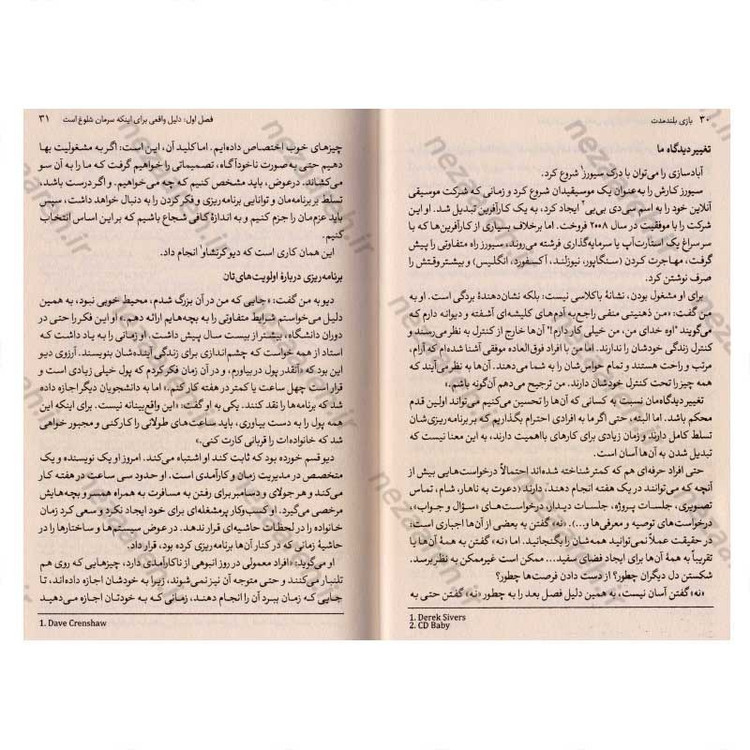 ۳۰ بازی بلندمدت
تغییر دیدگاه ما
آبادسازی را می‌توان با درک سیورز۱ شروع کرد.
سیورز کارش را به‌عنوان یک موسیقیدان شروع کرد و زمانی که شرکت موسیقی
آنلاین خود را به اسم سی‌دی بی‌بی۲ ایجاد کرد، به یک کارآفرین تبدیل شد. او این
شرکت را با موفقیت در سال ۲۰۰۸ فروخت. اما برخلاف بسیاری از کارآفرین‌ها که با
سر سراغ یک استارت‌آپ یا سرمایه‌گذاری فرشته می‌روند، سیورز راه متفاوتی را پیش
گرفت، مهاجرت کردن (سنگاپور، نیوزلند، آکسفورد، انگلیس) و بیشتر وقتش را
صرف نوشتن کرد.
برای او مشغول بودن، نشانهٔ باکلاسی نیست؛ بلکه نشان‌دهندهٔ بردگی است. او به
من گفت: «من ذهنیتی منفی راجع‌به آدم‌های کلیشه‌ای آشفته و دیوانه دارم که
می‌گویند "اوه خدای من، من خیلی کار دارم!" آن‌ها خارج از کنترل به نظر می‌رسند و
کنترل زندگی خودشان را ندارند. اما من با افراد فوق‌العاده موفقی آشنا شده‌ام که آرام،
مرتب و راحت هستند و تمام حواس‌شان را به شما می‌دهند. آن‌ها به نظر می‌آیند که
همه چیز را تحت کنترل خودشان دارند. من ترجیح می‌دهم آن‌گونه باشم.»
تغییر دیدگاه‌مان نسبت به کسانی که آن‌ها را تحسین می‌کنیم می‌تواند اولین قدم
محکم باشد. اما البته، حتی اگر ما به افرادی احترام بگذاریم که بر برنامه‌ریزی‌شان
تسلط کامل دارند و زمان زیادی برای کارهای بااهمیت دارند، به این معنا نیست که
تبدیل شدن به آن‌ها آسان است.
حتی افراد حرفه‌ای هم که کمتر شناخته شده‌اند احتمالاً درخواست‌هایی بیش از
آنچه که می‌توانند در یک هفته انجام دهند، دارند (دعوت به ناهار، شام، تماس
تصویری، جلسات پروژه، جلسات دیدار، درخواست‌های «سؤال و جواب»،
درخواست‌های توصیه و معرفی‌ها و...). «نه» گفتن به بعضی از آن‌ها اجباری است؛
در حقیقت عملاً نمی‌توانید همه‌شان را بگنجانید. اما «نه» گفتن به همه یا
تقریباً به همهٔ آن‌ها برای ایجاد فضای سفید... ممکن است غیرممکن به نظر برسد.
شکستن دل دیگران چطور؟ از دست دادن فرصت‌ها چطور؟
«نه» گفتن آسان نیست، به همین دلیل فصل بعد را به چطور «نه» گفتن حتی به
1. Derek Sivers
2. CD Baby
فصل اول: دلیل واقعی برای اینکه سرمان شلوغ است ۳۱
چیزهای خوب اختصاص داده‌ایم. اما کلید آن، این است: اگر به مشغولیت بها
دهیم حتی به‌صورت ناخودآگاه، تصمیماتی را خواهیم گرفت که ما را به آن سو
می‌کشاند. درعوض، باید مشخص کنیم که چه می‌خواهیم. و اگر درست باشد،
تسلط بر برنامه‌مان و توانایی برنامه ریزی و فکر کردن را به دنبال خواهد داشت، سپس
باید عزم‌مان را جزم کنیم و به اندازهٔ کافی شجاع باشیم که بر این اساس انتخاب
کنیم.
این همان کاری است که دیو کرنشاو۱ انجام داد.
برنامه‌ریزی دربارهٔ اولویت‌های‌تان
دیو به من گفت: «جایی که من در آن بزرگ شدم، محیط خوبی نبود، به همین
دلیل می‌خواستم شرایط متفاوتی را به بچه‌هایم ارائه دهم.» او این فکر را حتی در
دوران دانشگاه، بیشتر از بیست سال پیش داشت. او زمانی را به یاد داشت که
استاد از همه خواست که چشم‌اندازی برای زندگی آینده‌شان بنویسند. آرزوی دیو
این بود که «آنقدر پول دربیاورم، و در آن زمان فکر کردم که پول خیلی زیادی است و
قرار است چهل ساعت یا کمتر در هفته کار کنم.» اما به دانشجویان دیگر اجازه داده
شد که برنامه‌ها را نقد کنند. یکی به او گفت: «این واقع‌بینانه نیست. برای اینکه این
همه پول را به دست بیاوری، باید ساعت‌های طولانی را کار کنی و مجبور خواهی
شد که خانواده‌ات را قربانی کارت کنی.»
دیو قسم خورده بود که ثابت کند او اشتباه می‌کند. امروز او یک نویسنده و یک
متخصص در مدیریت زمان و کارآمدی است. او حدود سی ساعت در هفته کار
می‌کند و هر جولای و دسامبر برای رفتن به مسافرت به همراه همسر و بچه‌هایش
مرخصی می‌گیرد. او کسب‌وکار پرمشغله‌ای برای خود ایجاد نکرد و سعی کرد زمان
خانواده را در لحظات حاشیه‌ای قرار ندهد. در عوض سیستم‌ها و ساختارها را در
حاشیهٔ زمانی که در کنار آن‌ها برنامه‌ریزی کرده بود، قرار داد.
او می‌گوید: «افراد معمولی در روز انبوهی از ناکارآمدی دارد، چیزهایی که روی هم
تلنبار می‌کنند و حتی متوجه آن نیز نمی‌شوند، زیرا به خودشان اجازه داده‌اند، تا
جایی که زمان ببرد آن را انجام دهند، زمانی که به خودتان اجازه می‌دهید
1. Dave Crenshaw